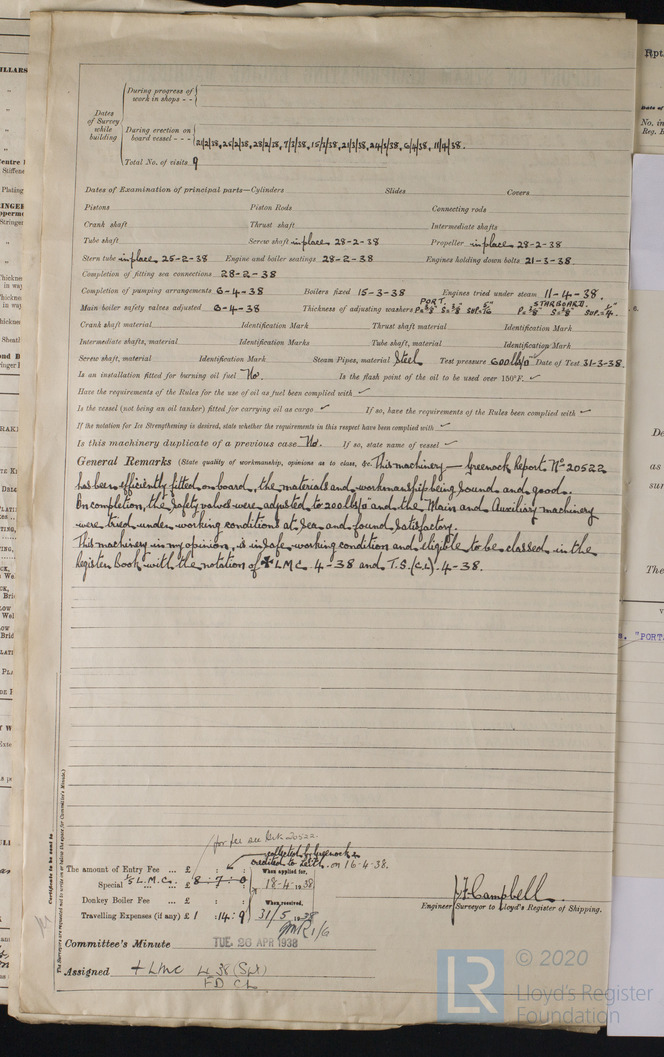 During progress of
work in shops - -
Dates
of Survey
while
building
During erection on
board vessel - - -
21/2/38, 25/2/38, 28/2/38, 7/3/38, 15/3/38, 21/3/38, 24/3/38, 6/4/38, 11/4/38.
Total No. of visits 9
Dates of Examination of principal parts—Cylinders Slides Covers
Pistons Piston Rods Connecting rods
Crank shaft Thrust shaft Intermediate shafts
Tube shaft Screw shaft in place 28-2-38 Propeller in place 28-2-38
Stern tube in place 25-2-38 Engine and boiler seatings 28-2-38 Engines holding down bolts 21-3-38
Completion of fitting sea connections 28-2-38
Completion of pumping arrangements 6-4-38 Boilers fixed 15-3-38 Engines tried under steam 11-4-38.
Main boiler safety valves adjusted 6-4-38 Thickness of adjusting washers PORT. P= 3/8" S= 3/8" SUP= 5/16" STARBOARD. P= 3/8" S= 3/8" SUP= 1/4"
Crank shaft material Identification Mark Thrust shaft material Identification Mark
Intermediate shafts, material Identification Marks Tube shaft, material Identification Mark
Screw shaft, material Identification Mark Steam Pipes, material Steel Test pressure 600 lbs/□" Date of Test 31-3-38.
Is an installation fitted for burning oil fuel No. Is the flash point of the oil to be used over 150°F. ✓
Have the requirements of the Rules for the use of oil as fuel been complied with ✓
Is the vessel (not being an oil tanker) fitted for carrying oil as cargo ✓ If so, have the requirements of the Rules been complied with ✓
If the notation for Ice Strengthening is desired, state whether the requirements in this respect have been complied with ✓
Is this machinery duplicate of a previous case No. If so, state name of vessel ✓
General Remarks (State quality of workmanship, opinions as to class, &c. This machinery — Greenock Report No 20522
has been efficiently fitted on board, the materials and workmanship being sound and good.
On completion, the safety valves were adjusted to 200 lbs/□" and the Main and Auxiliary machinery
were tried under working conditions at sea and found satisfactory.
This machinery in my opinion, is in safe working condition and eligible to be classed in the
register book with the notation of ✠ LMC. 4-38 and T.S.(C.L). 4-38.
for fee see Grk. 20522
collected by Greenock &
credited to Leith. on 16-4-38.
The amount of Entry Fee ... £ : : When applied for,
Special 1/5 L.M.C. ... £ 8 : 7 : 0 18-4-1938
Donkey Boiler Fee ... £ : : When received,
Travelling Expenses (if any) £ 1 : 14 : 9 31/5 1938
1/6
J. F. Campbell.
Engineer Surveyor to Lloyd's Register of Shipping.
Committee's Minute TUE. 26 APR 1938
Assigned + LMC 4.38 (Spt)
FD CL
Certificate to be sent to
(The Surveyors are requested not to write on or below the space for Committee's Minute.)
© 2020
LR
Lloyd's Register
Foundation
Rpt.
"PORT.